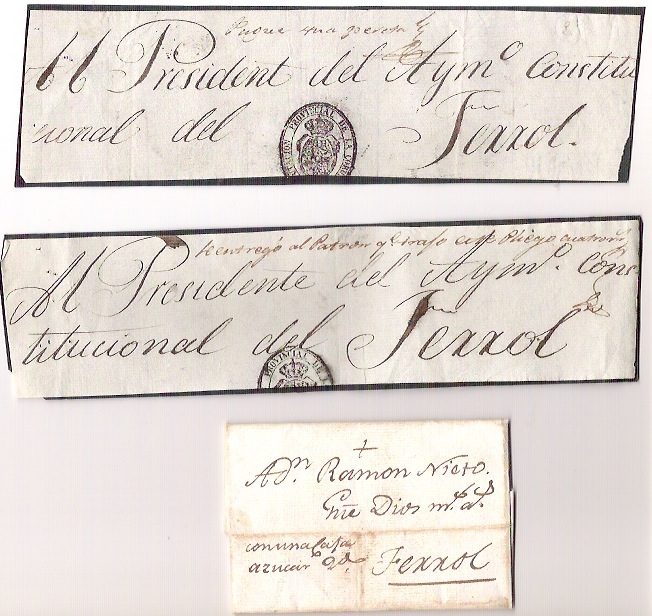 Pague una peseta
Al President del Aymº Constitu
cional del Ferrol.
PROVINCIAL DE LA
Se entregó al Patron qe trajo este Pliego cuatro
Al Presidente del Aymº. Cons
titucional del Ferrol
PROVINCIAL DE
+
A Dn. Ramon Nieto.
Gue Dios ms. as.
con una Caja
azucar
Ferrol